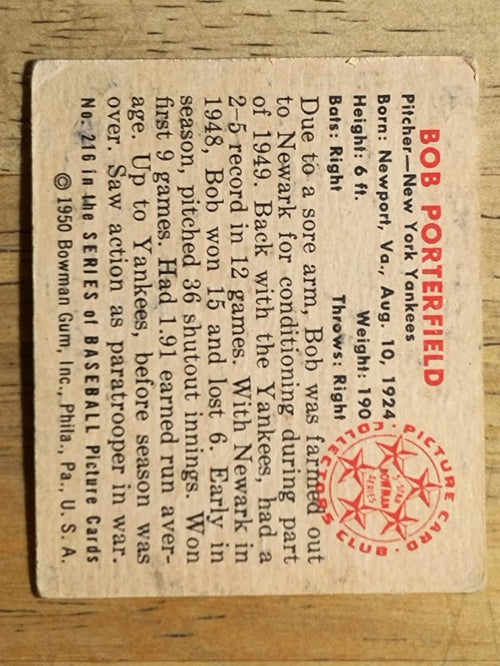 BOB PORTERFIELD
Pitcher—New York Yankees
Born: Newport, Va., Aug. 10, 1924
Height: 6 ft. Weight: 190
Bats: Right Throws: Right
Due to a sore arm, Bob was farmed out
to Newark for conditioning during part
of 1949. Back with the Yankees, had a
2-5 record in 12 games. With Newark in
1948, Bob won 15 and lost 6. Early in
season, pitched 36 shutout innings. Won
first 9 games. Had 1.91 earned run aver-
age. Up to Yankees, before season was
over. Saw action as paratrooper in war.
No. 216 in the SERIES of BASEBALL Picture Cards
© 1950 Bowman Gum, Inc., Phila., Pa., U. S. A.
PICTURE CARD · COLLECTORS CLUB ·
5-STAR
BOWMAN
SERIES